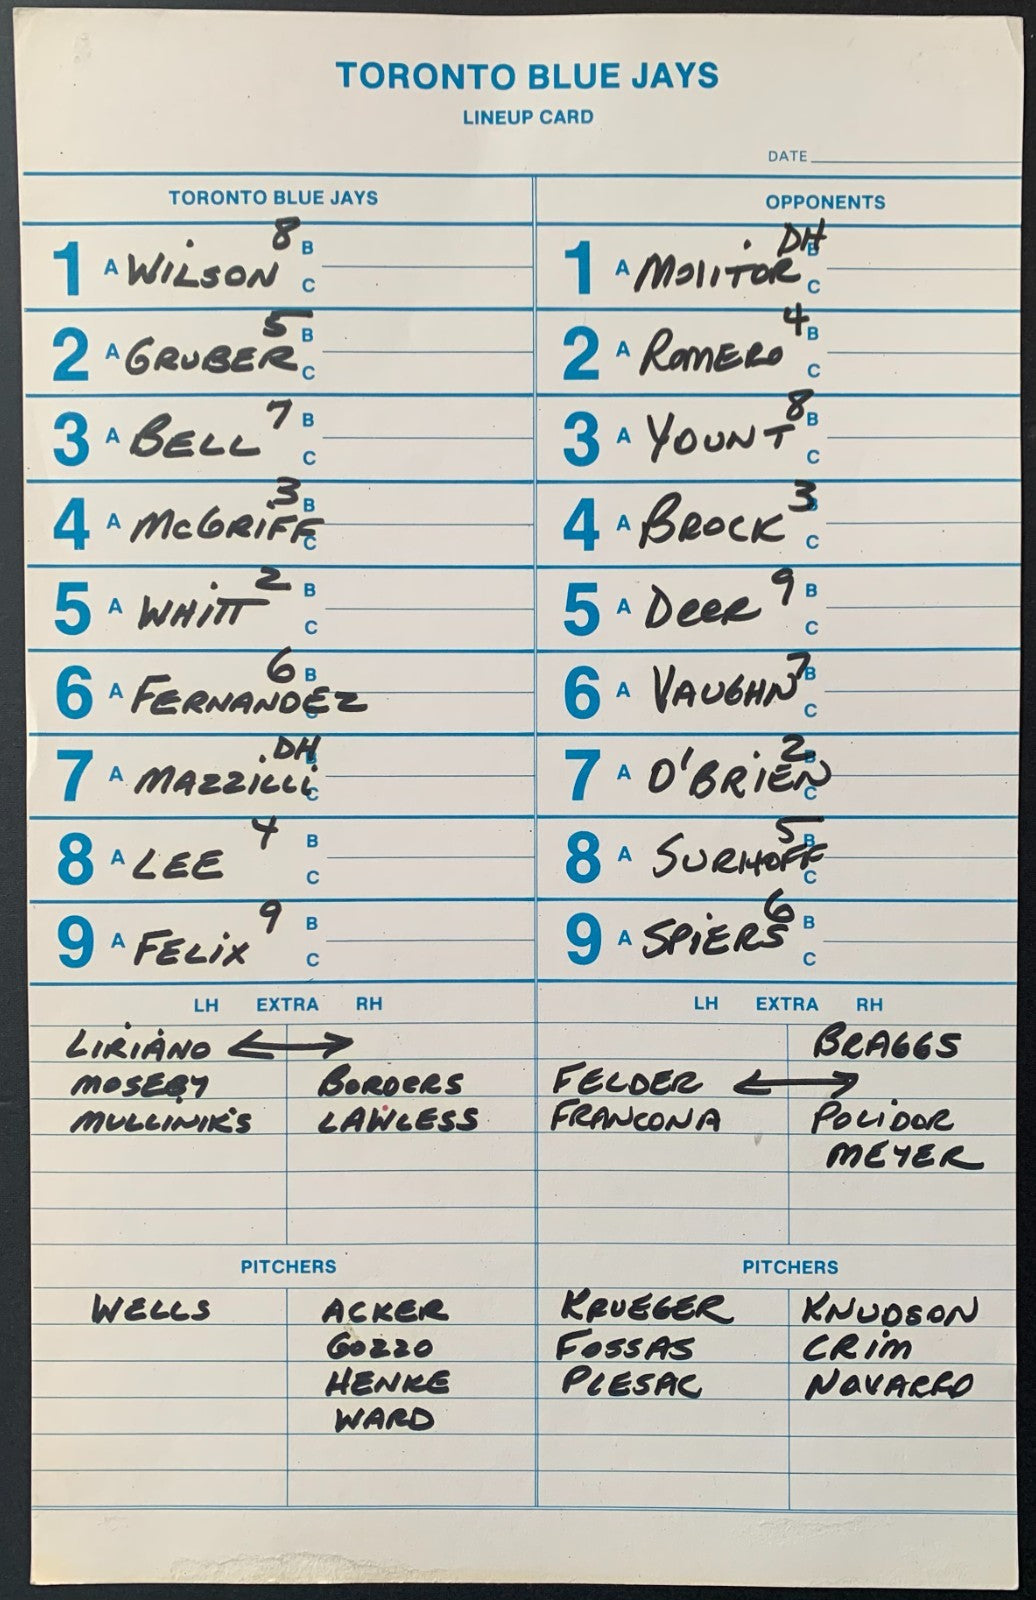 TORONTO BLUE JAYS
LINEUP CARD
DATE
TORONTO BLUE JAYS
1 A WILSON 8 B
C
2 A GRUBER 5 B
C
3 A BELL 7 B
C
4 A McGRIFF 3 B
C
5 A WHITT 2 B
C
6 A FERNANDEZ 6 B
C
7 A MAZZILLI DH B
C
8 A LEE 4 B
C
9 A FELIX 9 B
C
LH EXTRA RH
LIRIANO ↔
MOSEBY BORDERS
MULLINIK'S LAWLESS
PITCHERS
WELLS ACKER
GOZZO
HENKE
WARD
OPPONENTS
1 A MOLITOR DH B
C
2 A ROMERO 4 B
C
3 A YOUNT 8 B
C
4 A BROCK 3 B
C
5 A DEER 9 B
C
6 A VAUGHN 7 B
C
7 A O'BRIEN 2 B
C
8 A SURHOFF 5 B
C
9 A SPIERS 6 B
C
LH EXTRA RH
BRAGGS
FELDER ↔
FRANCONA POLIDOR
MEYER
PITCHERS
KRUEGER KNUDSON
FOSSAS CRIM
PLESAC NAVARRO